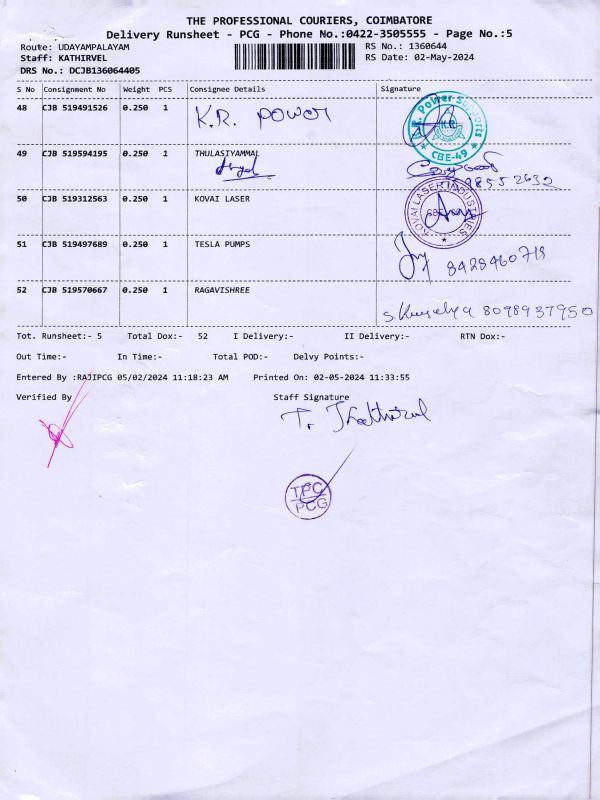 THE PROFESSIONAL COURIERS, COIMBATORE
Delivery Runsheet - PCG - Phone No.:0422-3505555 - Page No.:5
Route: UDAYAMPALAYAM RS No.: 1360644
Staff: KATHIRVEL RS Date: 02-May-2024
DRS No.: DCJB136064405
S No Consignment No Weight PCS Consignee Details Signature
48 CJB 519491526 0.250 1 K.R. POWER
K.R. Power Supports
★ CBE-49 ★
49 CJB 519594195 0.250 1 THULASIYAMMAL
50 CJB 519312563 0.250 1 KOVAI LASER
KOVAI LASER INDUSTRIES
51 CJB 519497689 0.250 1 TESLA PUMPS
8428460719
52 CJB 519570667 0.250 1 RAGAVISHREE
8098937950
Tot. Runsheet:- 5 Total Dox:- 52 I Delivery:- II Delivery:- RTN Dox:-
Out Time:- In Time:- Total POD:- Delvy Points:-
Entered By :RAJIPCG 05/02/2024 11:18:23 AM Printed On: 02-05-2024 11:33:55
Verified By Staff Signature
TPC
PCG